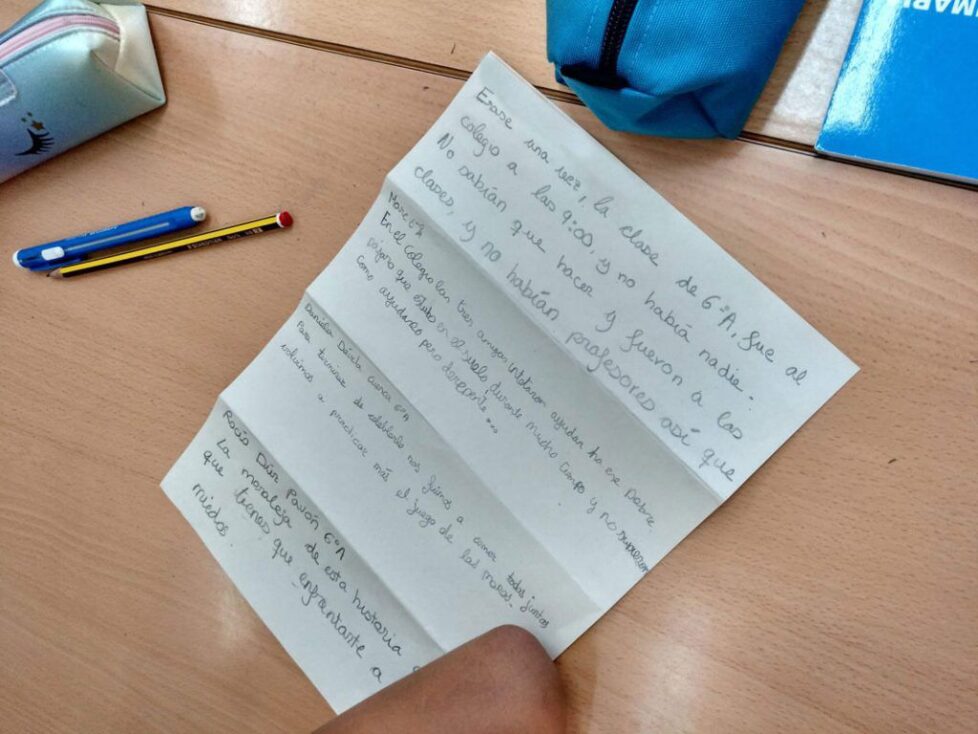 Erase una vez, la clase de 6ºA, fue al
colegio a las 9:00, y no había nadie.
No sabían que hacer y fueron a las
clases, y no habían profesores así que
6ºA
En el colegio las tres amigas intetaron ayudar ha ese pobre
pajaro que estubo en el suelo durante mucho tiempo y no supieron
como ayudarlo pero derepente...
Daniela Dávila cuenca 6ºA
Para terminar de celebrarlo nos fuimos a comer todos juntos
volvimos a practicar más el juego de las manos.
Rocío Díaz Pavón 6ºA
La moraleja de esta historia
que tienes que enfrentarte a
miedos.
MARI